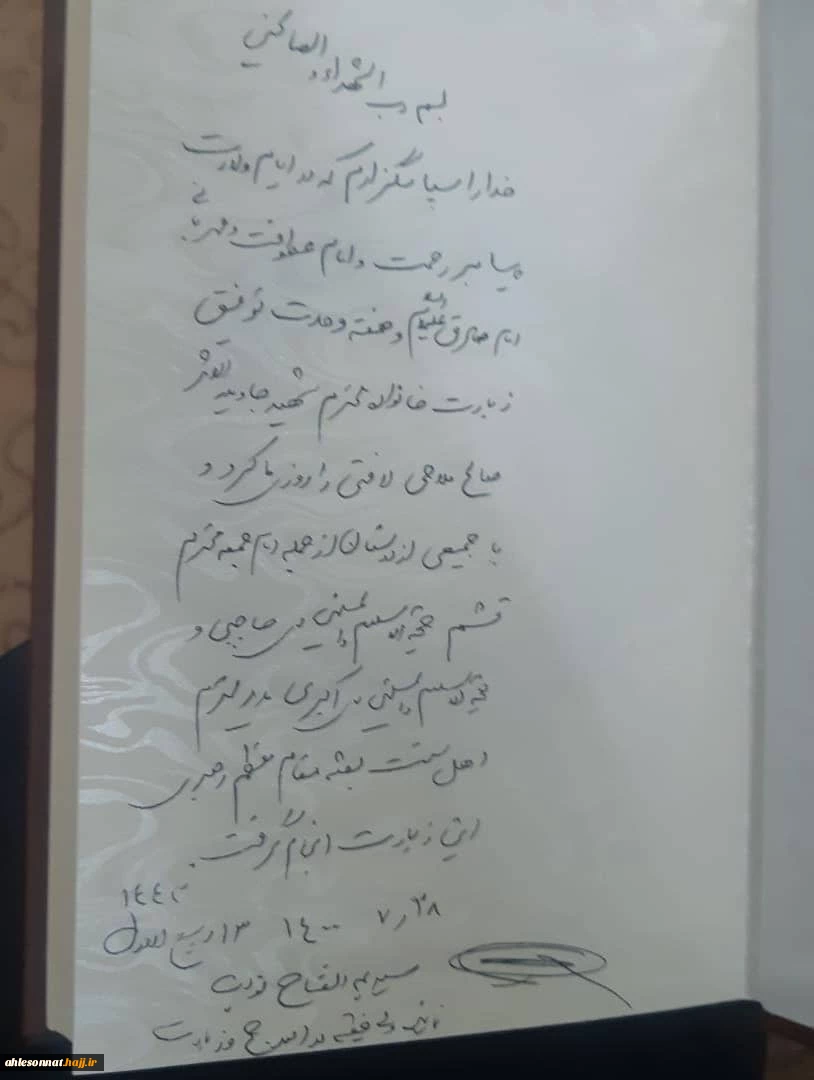 بسم رب الشهداء و الصالحین
خدا را سپاسگزارم که در ایام ولادت
پیامبر رحمت و امام عطوفت و مهربانی
امام صادق علیه السلام و هفته وحدت توفیق
زیارت خانواده محترم شهید جاوید الاثر
صالح ملاحی لافتی را روزی ما کرد و
با جمعیی از دوستان از جمله امام جمعه محترم
قشم حجة الاسلام والمسلمین حاجبی و
حجة الاسلام والمسلمین اکبری مدیر محترم
اهل سنت بعثه مقام معظم رهبری
این زیارت انجام گرفت.
١٤٤٣
٢٨ ر ٧ ١٤٠٠ ١٣ ربیع الاول
سید عبد الفتاح نواب
نماینده ولی فقیه در امور حج و زیارت
ahlesonnat.hajj.ir